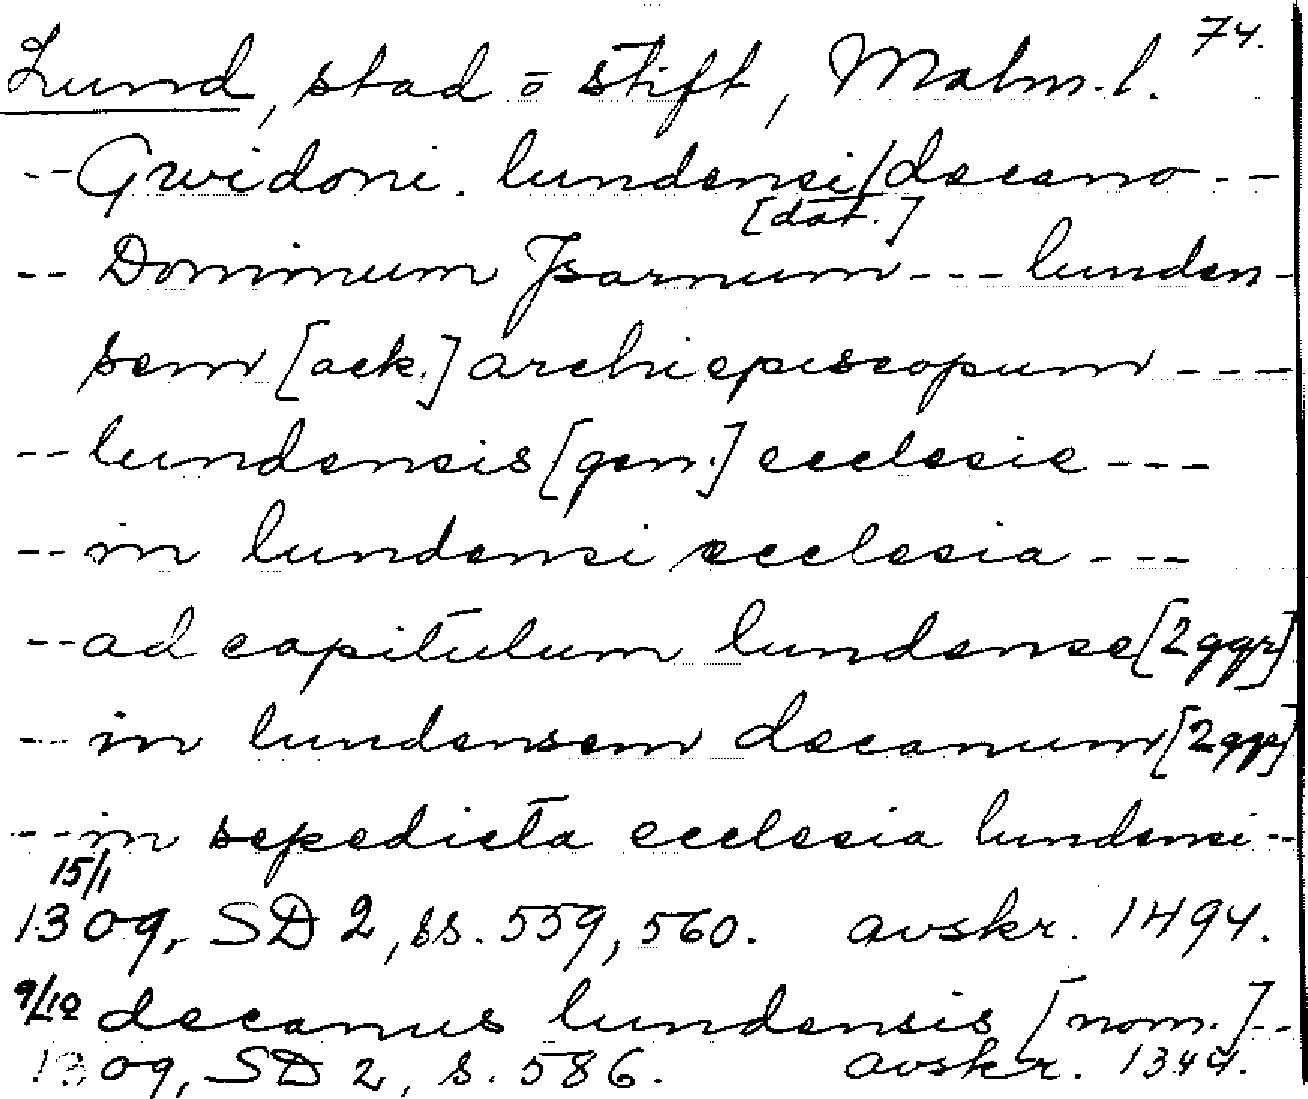 74.
Lund, stad o stift, Malm. l.
-- Gwidoni. lundensi/decano --
[dat.]
-- Dominum Jsarnum --- lunden-
sem [ack.] archiepiscopum ---
-- lundensis [gen.] ecclesie ---
-- in lundensi ecclesia ---
-- ad capitulum lundense [2 ggr]
-- in lundensem decanum [2 ggr]
-- in sepedicta ecclesia lundensi --
15/1
1309, SD 2, ss. 559, 560. avskr. 1494.
9/10 decanus lundensis [nom.] --
1309, SD 2, s. 586. avskr. 1344.